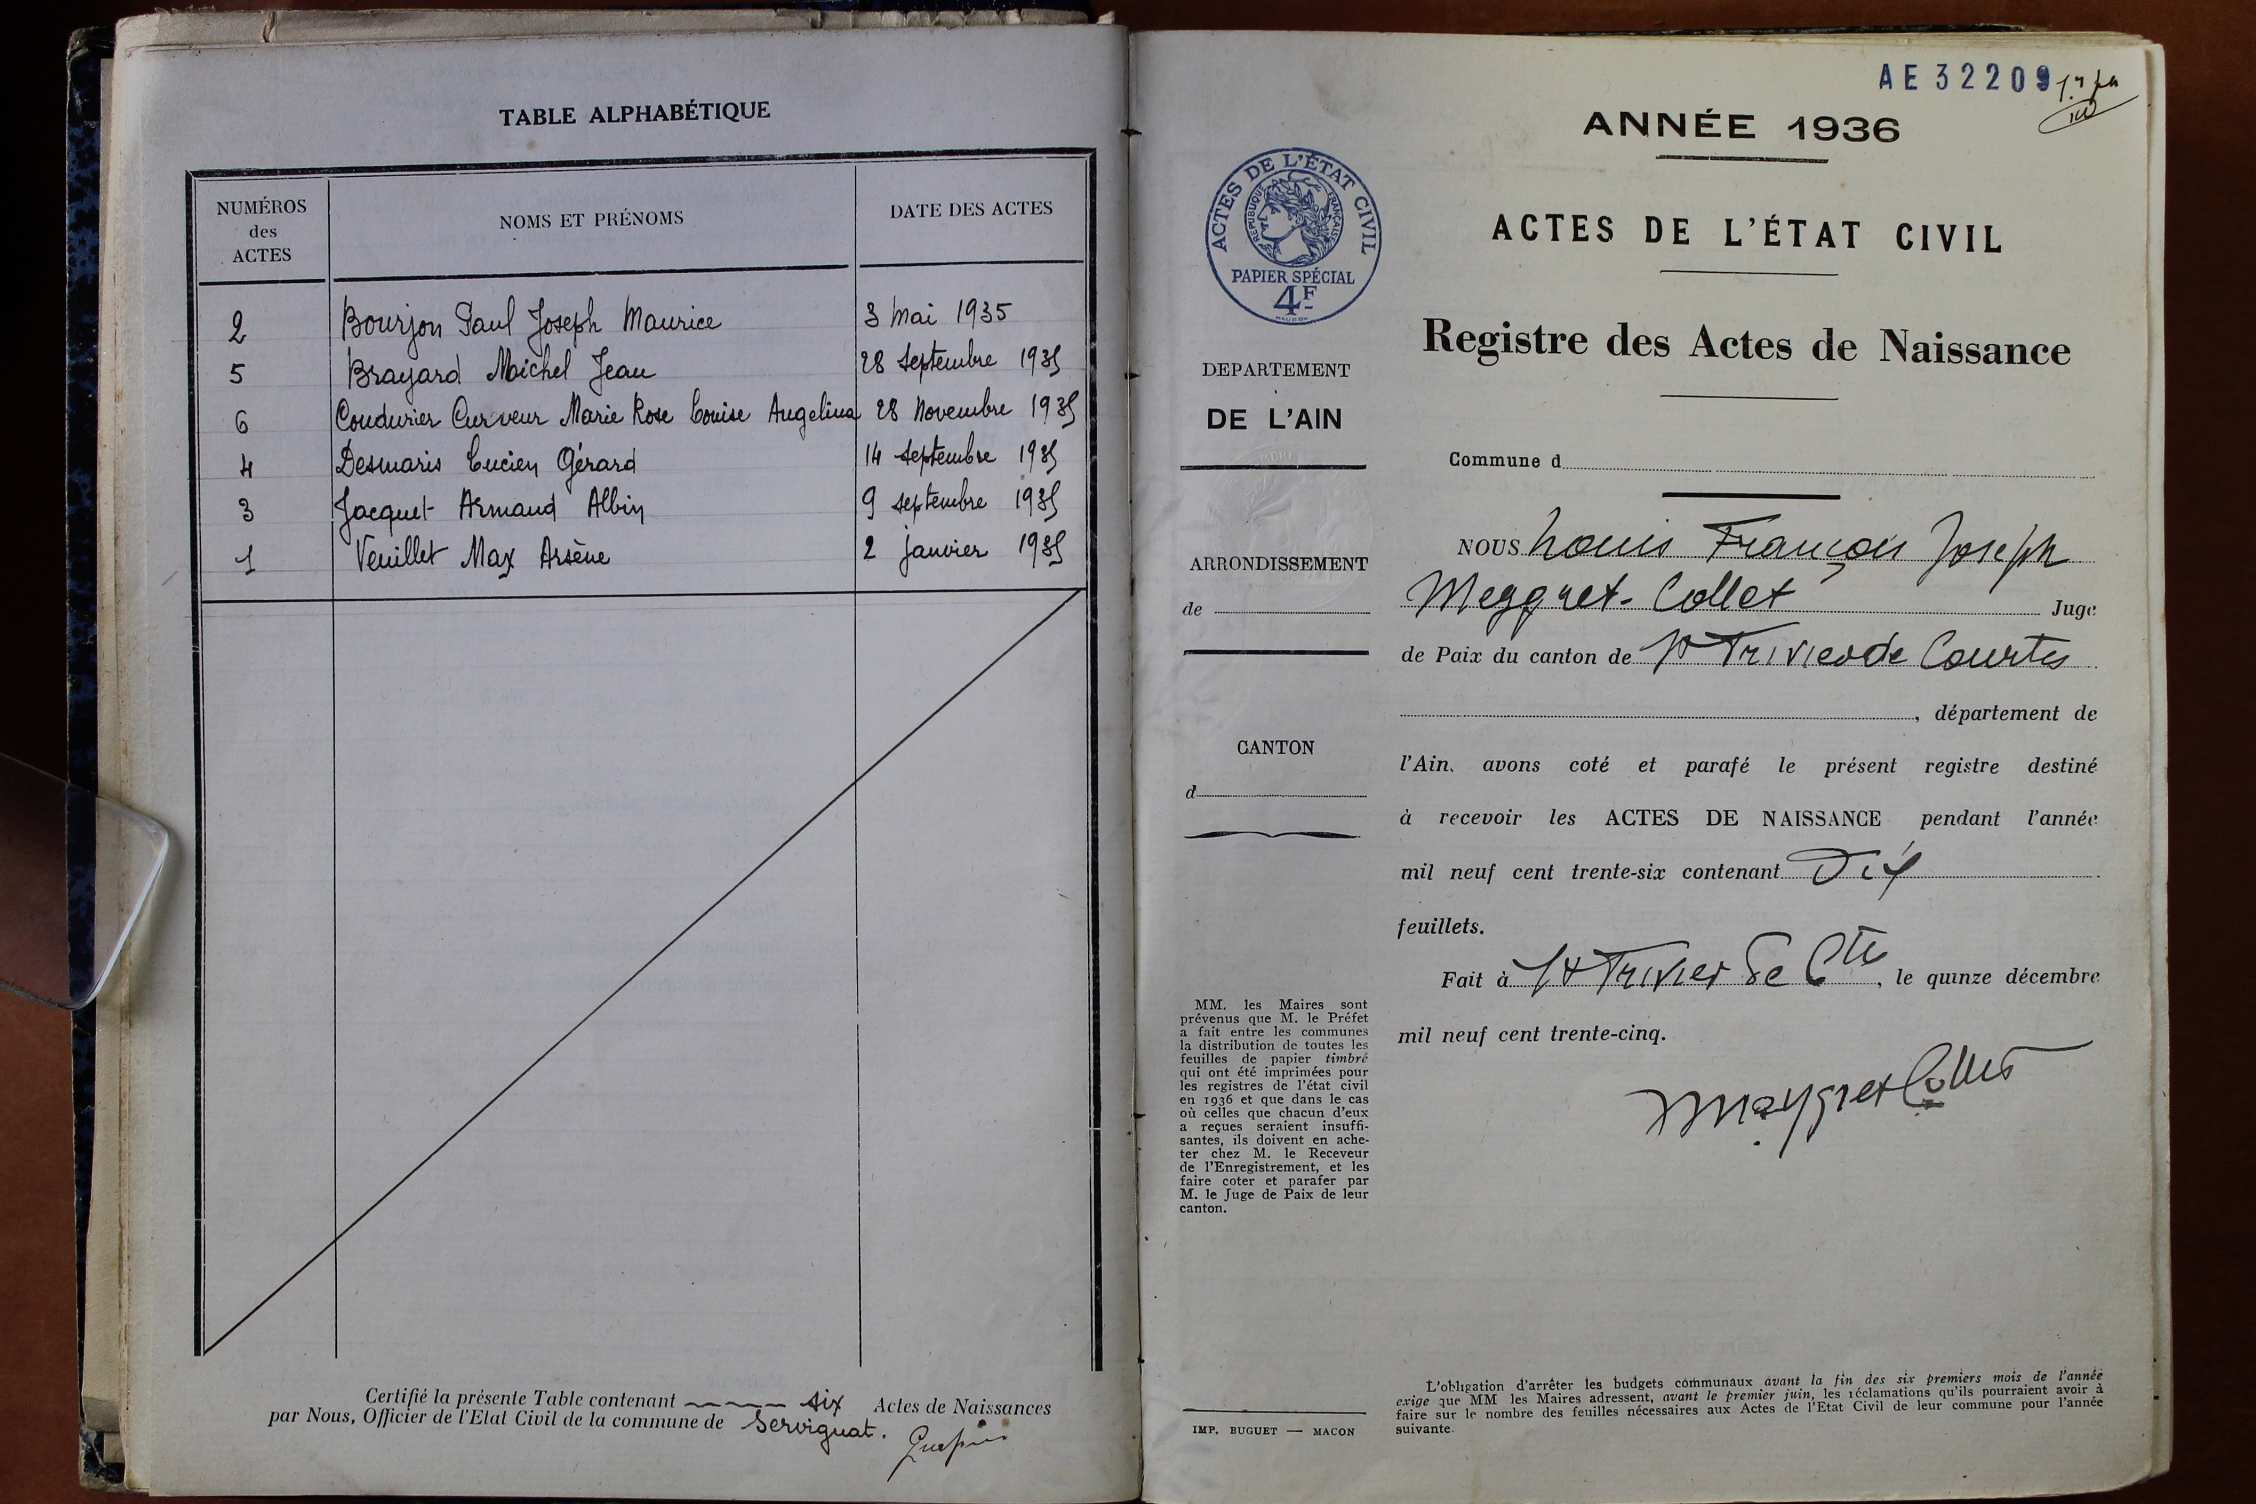 TABLE ALPHABÉTIQUE
NUMÉROS
des
ACTES
NOMS ET PRÉNOMS
DATE DES ACTES
2 Bourjon Paul Joseph Maurice 3 Mai 1935
5 Brayard Michel Jean 28 Septembre 1935
6 Coudurier Curveur Marie Rose Louise Angelina 28 Novembre 1935
4 Desmaris Lucien Gérard 14 septembre 1935
3 Jacquet Armand Albin 9 septembre 1935
1 Veuillet Max Arsène 2 janvier 1935
Certifié la présente Table contenant six Actes de Naissances
par Nous, Officier de l'Etat Civil de la commune de Servignat.
AE 32209
ANNÉE 1936
ACTES DE L'ÉTAT CIVIL
RÉPUBLIQUE FRANÇAISE
PAPIER SPÉCIAL
4F
ACTES DE L'ÉTAT CIVIL
Registre des Actes de Naissance
DEPARTEMENT
DE L'AIN
Commune d
ARRONDISSEMENT
de
CANTON
d
NOUS Louis François Joseph
Meygret-Collet Juge
de Paix du canton de St Trivier de Courtes
, département de
l'Ain, avons coté et parafé le présent registre destiné
à recevoir les ACTES DE NAISSANCE pendant l'année
mil neuf cent trente-six contenant Dix
feuillets.
Fait à St Trivier de Ctes, le quinze décembre
mil neuf cent trente-cinq.
Meygret Collet
MM. les Maires sont
prévenus que M. le Préfet
a fait entre les communes
la distribution de toutes les
feuilles de papier timbré
qui ont été imprimées pour
les registres de l'état civil
en 1936 et que dans le cas
où celles que chacun d'eux
a reçues seraient insuffi-
santes, ils doivent en ache-
ter chez M. le Receveur
de l'Enregistrement, et les
faire coter et parafer par
M. le Juge de Paix de leur
canton.
IMP. BUGUET — MACON
L'obligation d'arrêter les budgets communaux avant la fin des six premiers mois de l'année
exige que MM les Maires adressent, avant le premier juin, les réclamations qu'ils pourraient avoir à
faire sur le nombre des feuilles nécessaires aux Actes de l'Etat Civil de leur commune pour l'année
suivante.